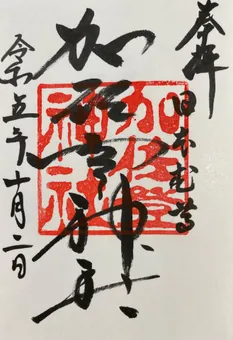 奉拝
日本武尊
加佐登神社
加佐登神社
令和五年十月二日